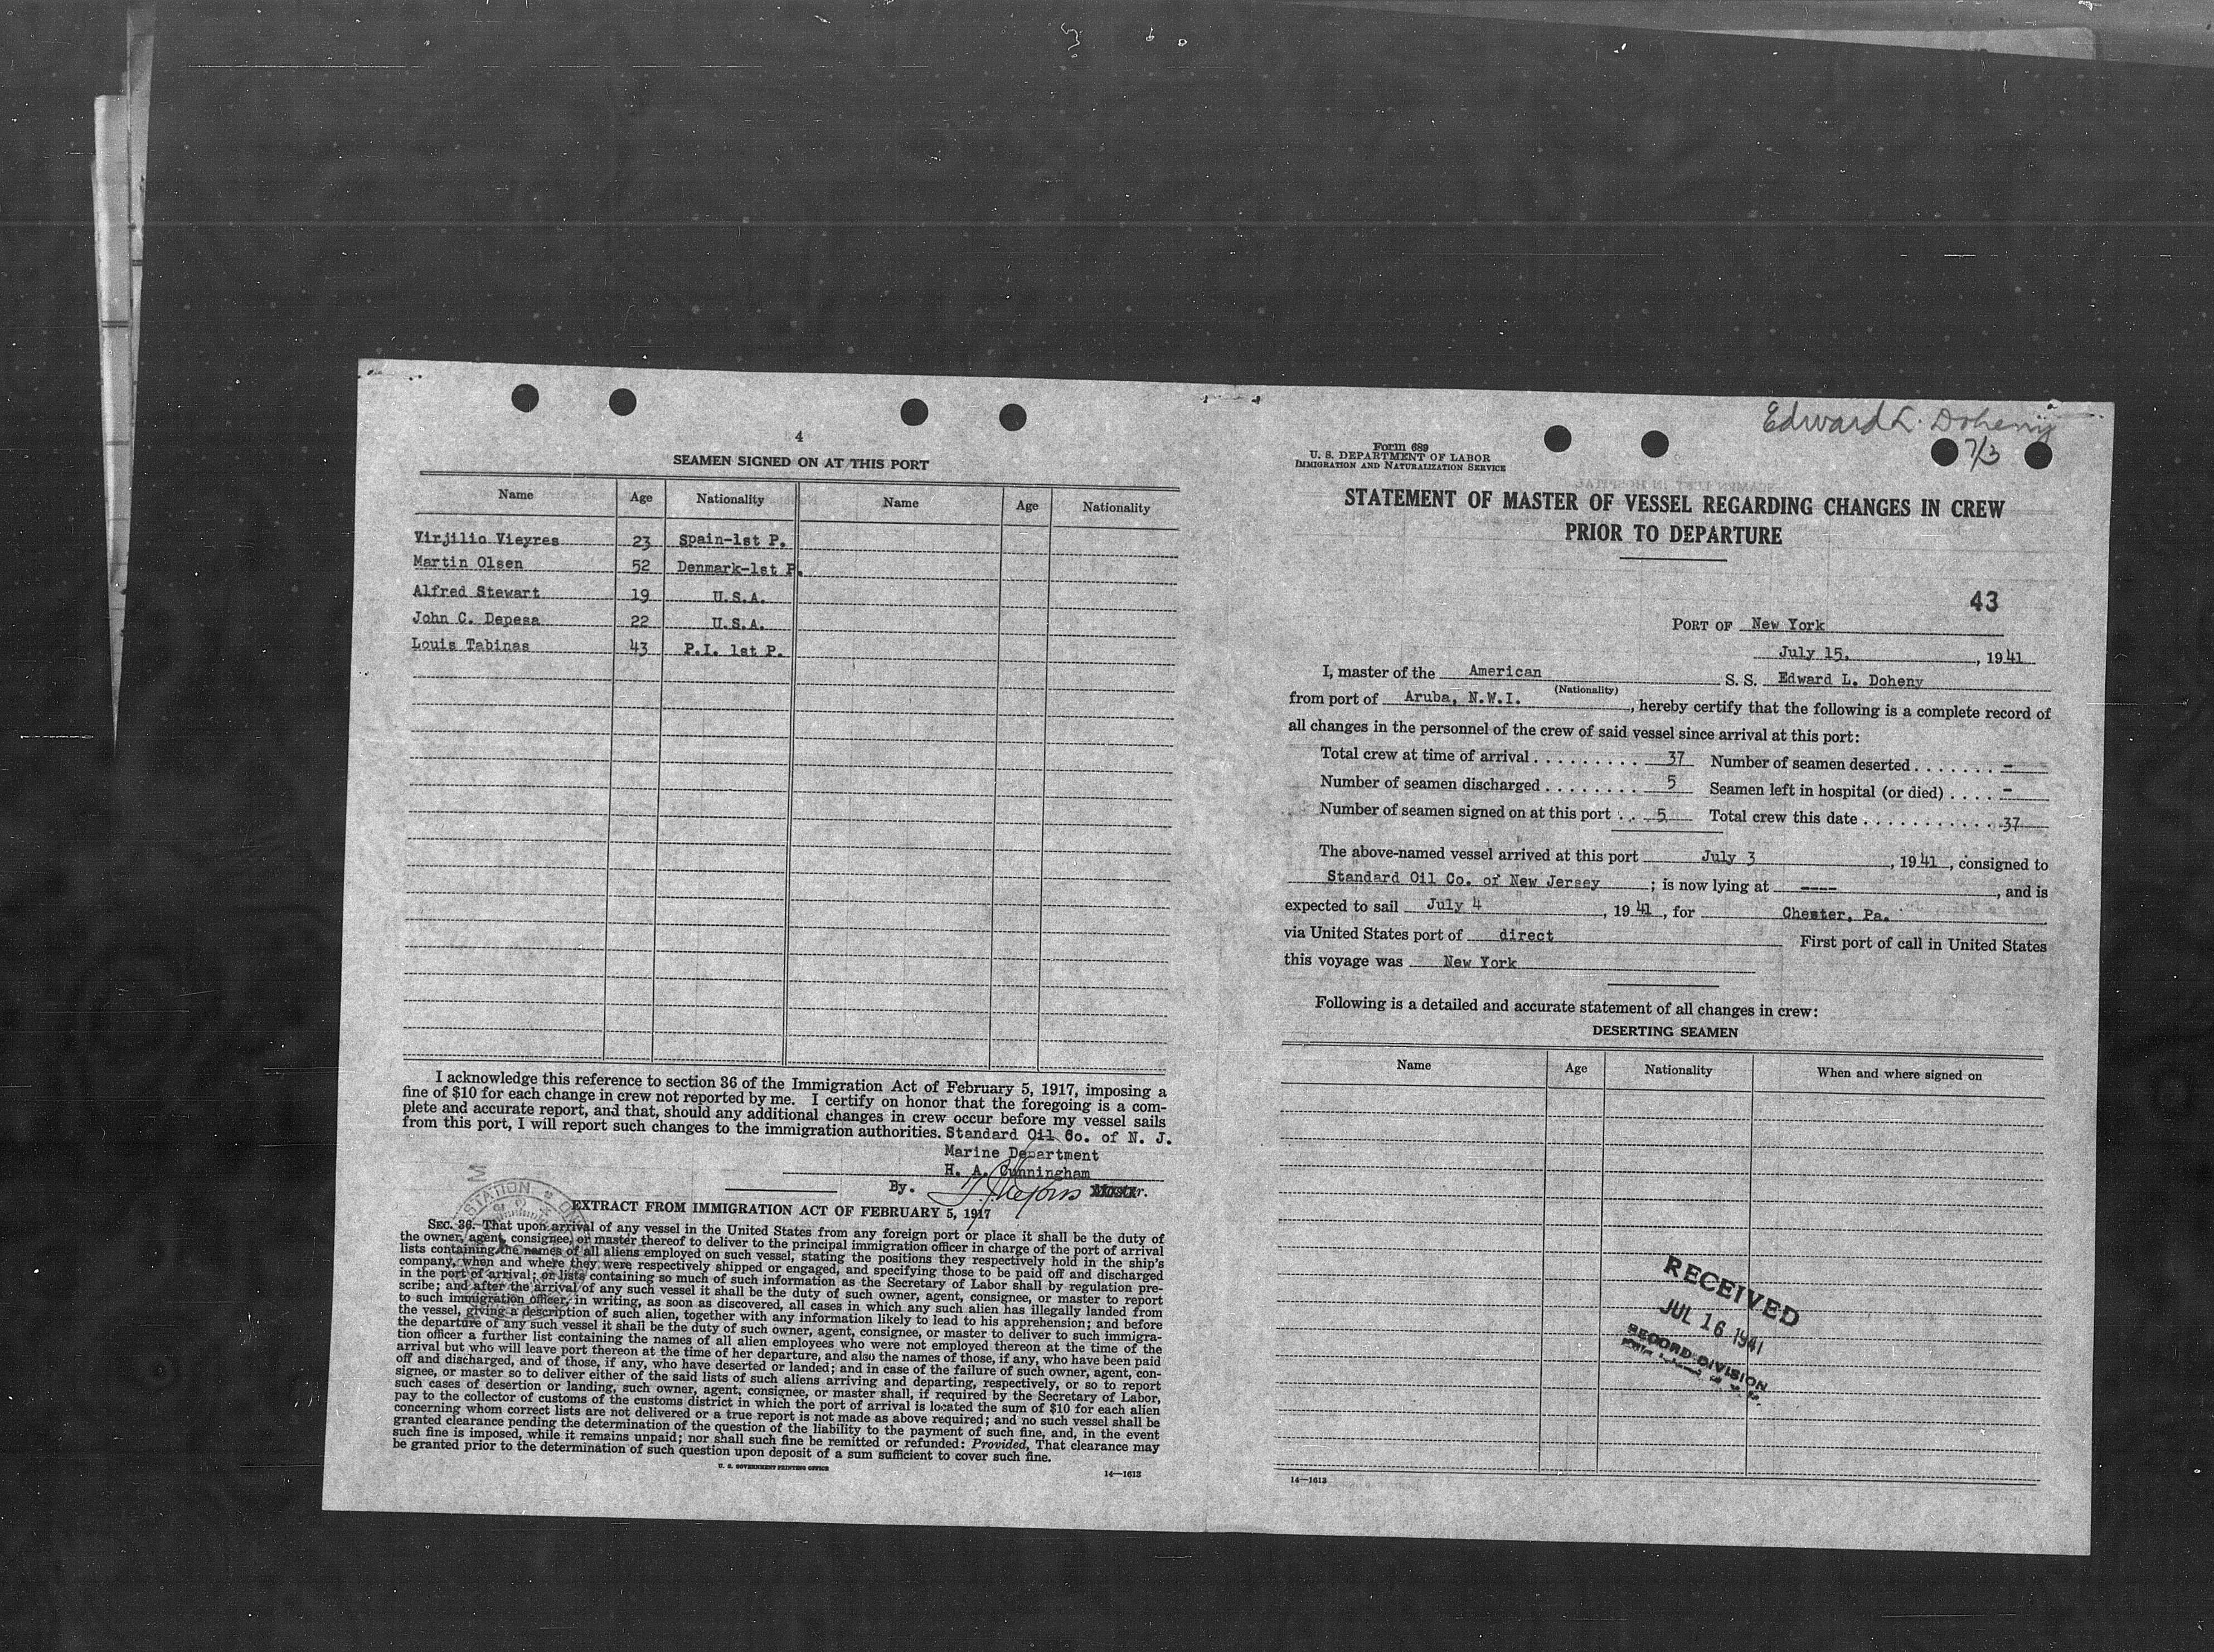 4
SEAMEN SIGNED ON AT THIS PORT
Name Age Nationality Name Age Nationality
Virjilio Vieyres 23 Spain-1st P.
Martin Olsen 52 Denmark-1st P.
Alfred Stewart 19 U.S.A.
John C. Depesa 22 U.S.A.
Louis Tabinas 43 P.I. 1st P.
I acknowledge this reference to section 36 of the Immigration Act of February 5, 1917, imposing a
fine of $10 for each change in crew not reported by me. I certify on honor that the foregoing is a com-
plete and accurate report, and that, should any additional changes in crew occur before my vessel sails
from this port, I will report such changes to the immigration authorities. Standard Oil Co. of N. J.
Marine Department
H. A. Cunningham
By. Master.
EXTRACT FROM IMMIGRATION ACT OF FEBRUARY 5, 1917
SEC. 36. That upon arrival of any vessel in the United States from any foreign port or place it shall be the duty of
the owner, agent, consignee, or master thereof to deliver to the principal immigration officer in charge of the port of arrival
lists containing the names of all aliens employed on such vessel, stating the positions they respectively hold in the ship's
company, when and where they were respectively shipped or engaged, and specifying those to be paid off and discharged
in the port of arrival; or lists containing so much of such information as the Secretary of Labor shall by regulation pre-
scribe; and after the arrival of any such vessel it shall be the duty of such owner, agent, consignee, or master to report
to such immigration officer, in writing, as soon as discovered, all cases in which any such alien has illegally landed from
the vessel, giving a description of such alien, together with any information likely to lead to his apprehension; and before
the departure of any such vessel it shall be the duty of such owner, agent, consignee, or master to deliver to such immigra-
tion officer a further list containing the names of all alien employees who were not employed thereon at the time of the
arrival but who will leave port thereon at the time of her departure, and also the names of those, if any, who have been paid
off and discharged, and of those, if any, who have deserted or landed; and in case of the failure of such owner, agent, con-
signee, or master so to deliver either of the said lists of such aliens arriving and departing, respectively, or so to report
such cases of desertion or landing, such owner, agent, consignee, or master shall, if required by the Secretary of Labor,
pay to the collector of customs of the customs district in which the port of arrival is located the sum of $10 for each alien
concerning whom correct lists are not delivered or a true report is not made as above required; and no such vessel shall be
granted clearance pending the determination of the question of the liability to the payment of such fine, and, in the event
such fine is imposed, while it remains unpaid; nor shall such fine be remitted or refunded: Provided, That clearance may
be granted prior to the determination of such question upon deposit of a sum sufficient to cover such fine.
U. S. GOVERNMENT PRINTING OFFICE 14—1613
STATION
Edward L. Doheny
7/3
Form 689
U. S. DEPARTMENT OF LABOR
IMMIGRATION AND NATURALIZATION SERVICE
STATEMENT OF MASTER OF VESSEL REGARDING CHANGES IN CREW
PRIOR TO DEPARTURE
43
PORT OF New York
July 15, , 1941
I, master of the American S. S. Edward L. Doheny
(Nationality)
from port of Aruba, N.W.I. , hereby certify that the following is a complete record of
all changes in the personnel of the crew of said vessel since arrival at this port:
Total crew at time of arrival . . . . . . . . . 37 Number of seamen deserted . . . . . . . -
Number of seamen discharged . . . . . . . . 5 Seamen left in hospital (or died) . . . . -
Number of seamen signed on at this port . . 5 Total crew this date . . . . . . . . . . . 37
The above-named vessel arrived at this port July 3 , 1941 , consigned to
Standard Oil Co. of New Jersey ; is now lying at ---- , and is
expected to sail July 4 , 1941 , for Chester, Pa.
via United States port of direct First port of call in United States
this voyage was New York
Following is a detailed and accurate statement of all changes in crew:
DESERTING SEAMEN
Name Age Nationality When and where signed on
RECEIVED
JUL 16 1941
RECORD DIVISION
14—1613